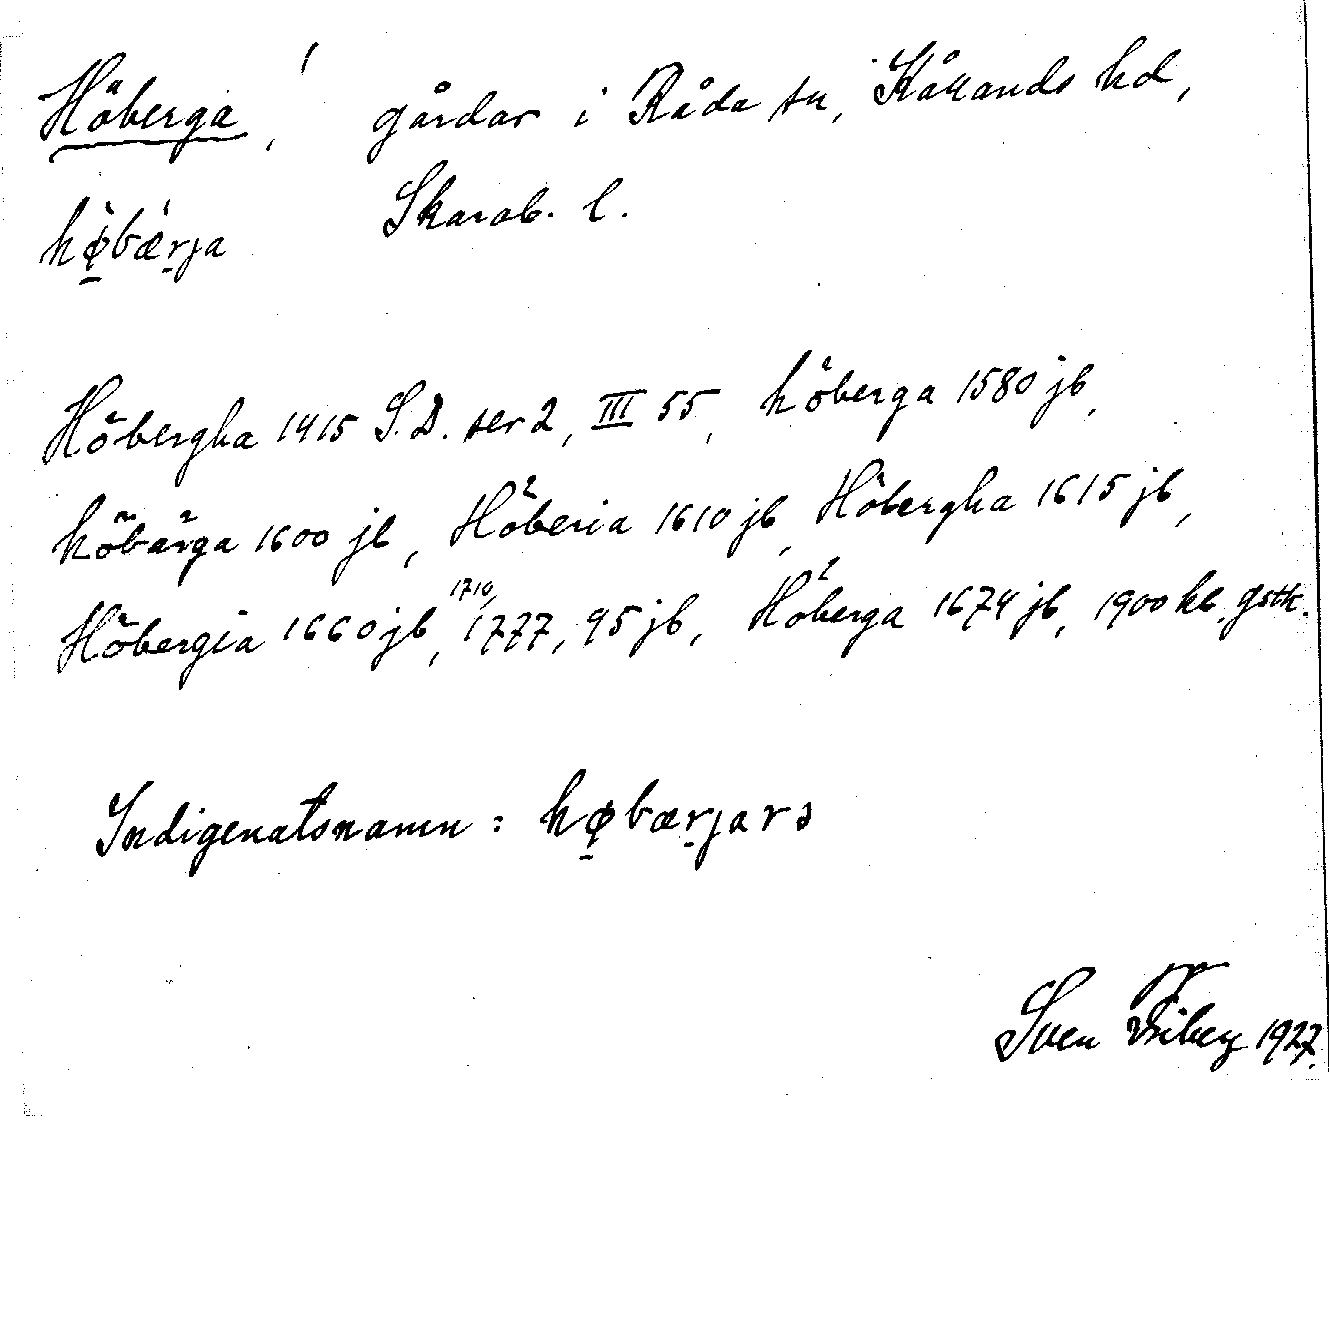 Höberga, gårdar i Råda sn, Kållands hd,
hø̀bǽrja Skarab. l.
Höbergha 1415 S.D. ser 2, III 55, höberga 1580 jb,
höbärga 1600 jb, Höberia 1610 jb, Höbergha 1615 jb,
Höbergia 1660 jb, 1710, 1777, 95 jb, Höberga 1674 jb, 1900 kb. gstk.
Indigenatsnamn: høbærjarə
Sven Friberg 1927.